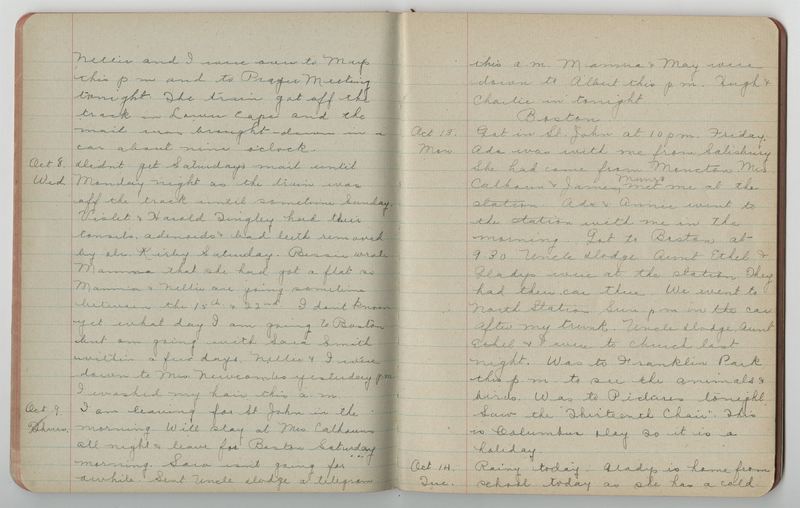 Nellie and I were over to May's
this p m and to Prayer Meeting
tonight. The train got off the
track in Lower Cape and the
mail was brought down in a
car about nine o'clock.
Oct 8. Didnt get Saturdays mail until
Wed Monday night as the train was
off the track until sometime Sunday.
Violet & Harold Tingley had their
tonsils, adenoids & bad teeth removed
by Dr. Kirby Saturday. Bessie wrote
Mamma that she had got a flat so
Mamma & Nellie are going sometime
between the 15th & 22nd. I don't know
yet what day I am going to Boston
but am going with Sara Smith
within a few days. Nellie & I were
down to Mrs. Newcombs yesterday pm
I washed my hair this a.m.
Oct 9. I am leaving for St John in the
Thurs. morning. Will stay at Mrs. Calhouns
all night & leave for Boston Saturday
morning. Sara isnt going for
awhile. Sent Uncle Dodge a telegram
this a m. Mamma & May were
down to Albert this p.m. Hugh &
Charlie in tonight.
Boston
Oct 13. Got in St. John at 10 p.m. Friday.
Mon. Ada was with me from Salisbury
She had come from Moncton. Mrs.
Calhoun & James Munro met me at the
station. Ada & Annie went to
the station with me in the
morning. Got to Boston at
9.30. Uncle Dodge Aunt Ethel &
Gladys were at the station. They
had their car there. We went to
North Station Sun p m in the car
after my trunk. Uncle Dodge, Aunt
Ethel & I were to church last
night. Was to Franklin Park
this p.m. to see the animals &
birds. Was to Pictures tonight.
Saw the "Thirteenth Chair". This
is Columbus Day so it is a
holiday.
Oct. 14. Rainy today. Gladys is home from
Tue. school today as she has a cold.